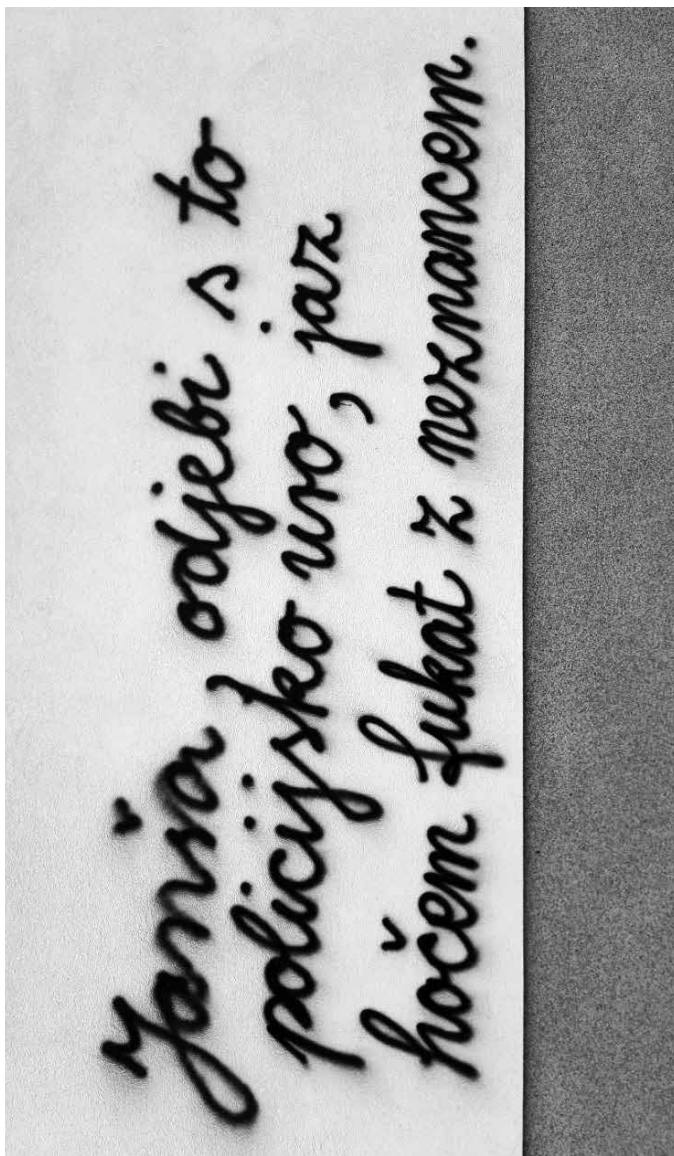 Janša, odjebi s to
policijsko uro, jaz
hočem fukat z neznancem.